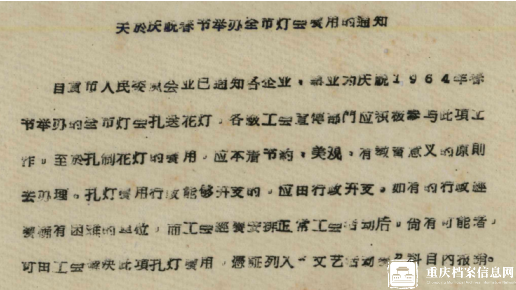 关於庆祝春节举办全市灯会费用的通知
自贡市人民委员会业已通知各企业,事业为庆祝1964年春
节举办的全市灯会扎送花灯,各级工会宣传部門应积极参与此項工
作。至於扎制花灯的费用,应本着节約,美观,有教育意义的原則
去办理。扎灯费用行政能够开支的,应由行政开支。如有的行政经
费确有困难的单位,而工会经费安排正常工会活动后,尚有可能者,
可由工会解决此項扎灯费用,凭証列入"文艺活动费"科目内报銷。
重庆档案信息网